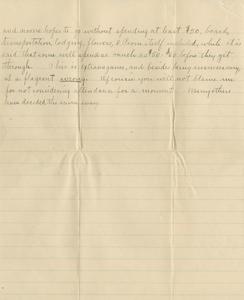 and moore hopes to go without spending at least $30, board,
transportation, lodging, flowers, & Prom itself included, while it is
said that some will spend as much as $50-$60 before they get
through. This is extravagance, and besides being unnecessary,
is a flagrant wrong. Of course you will not blame me
for not considering attendance for a moment. Many others
have decided the same way.